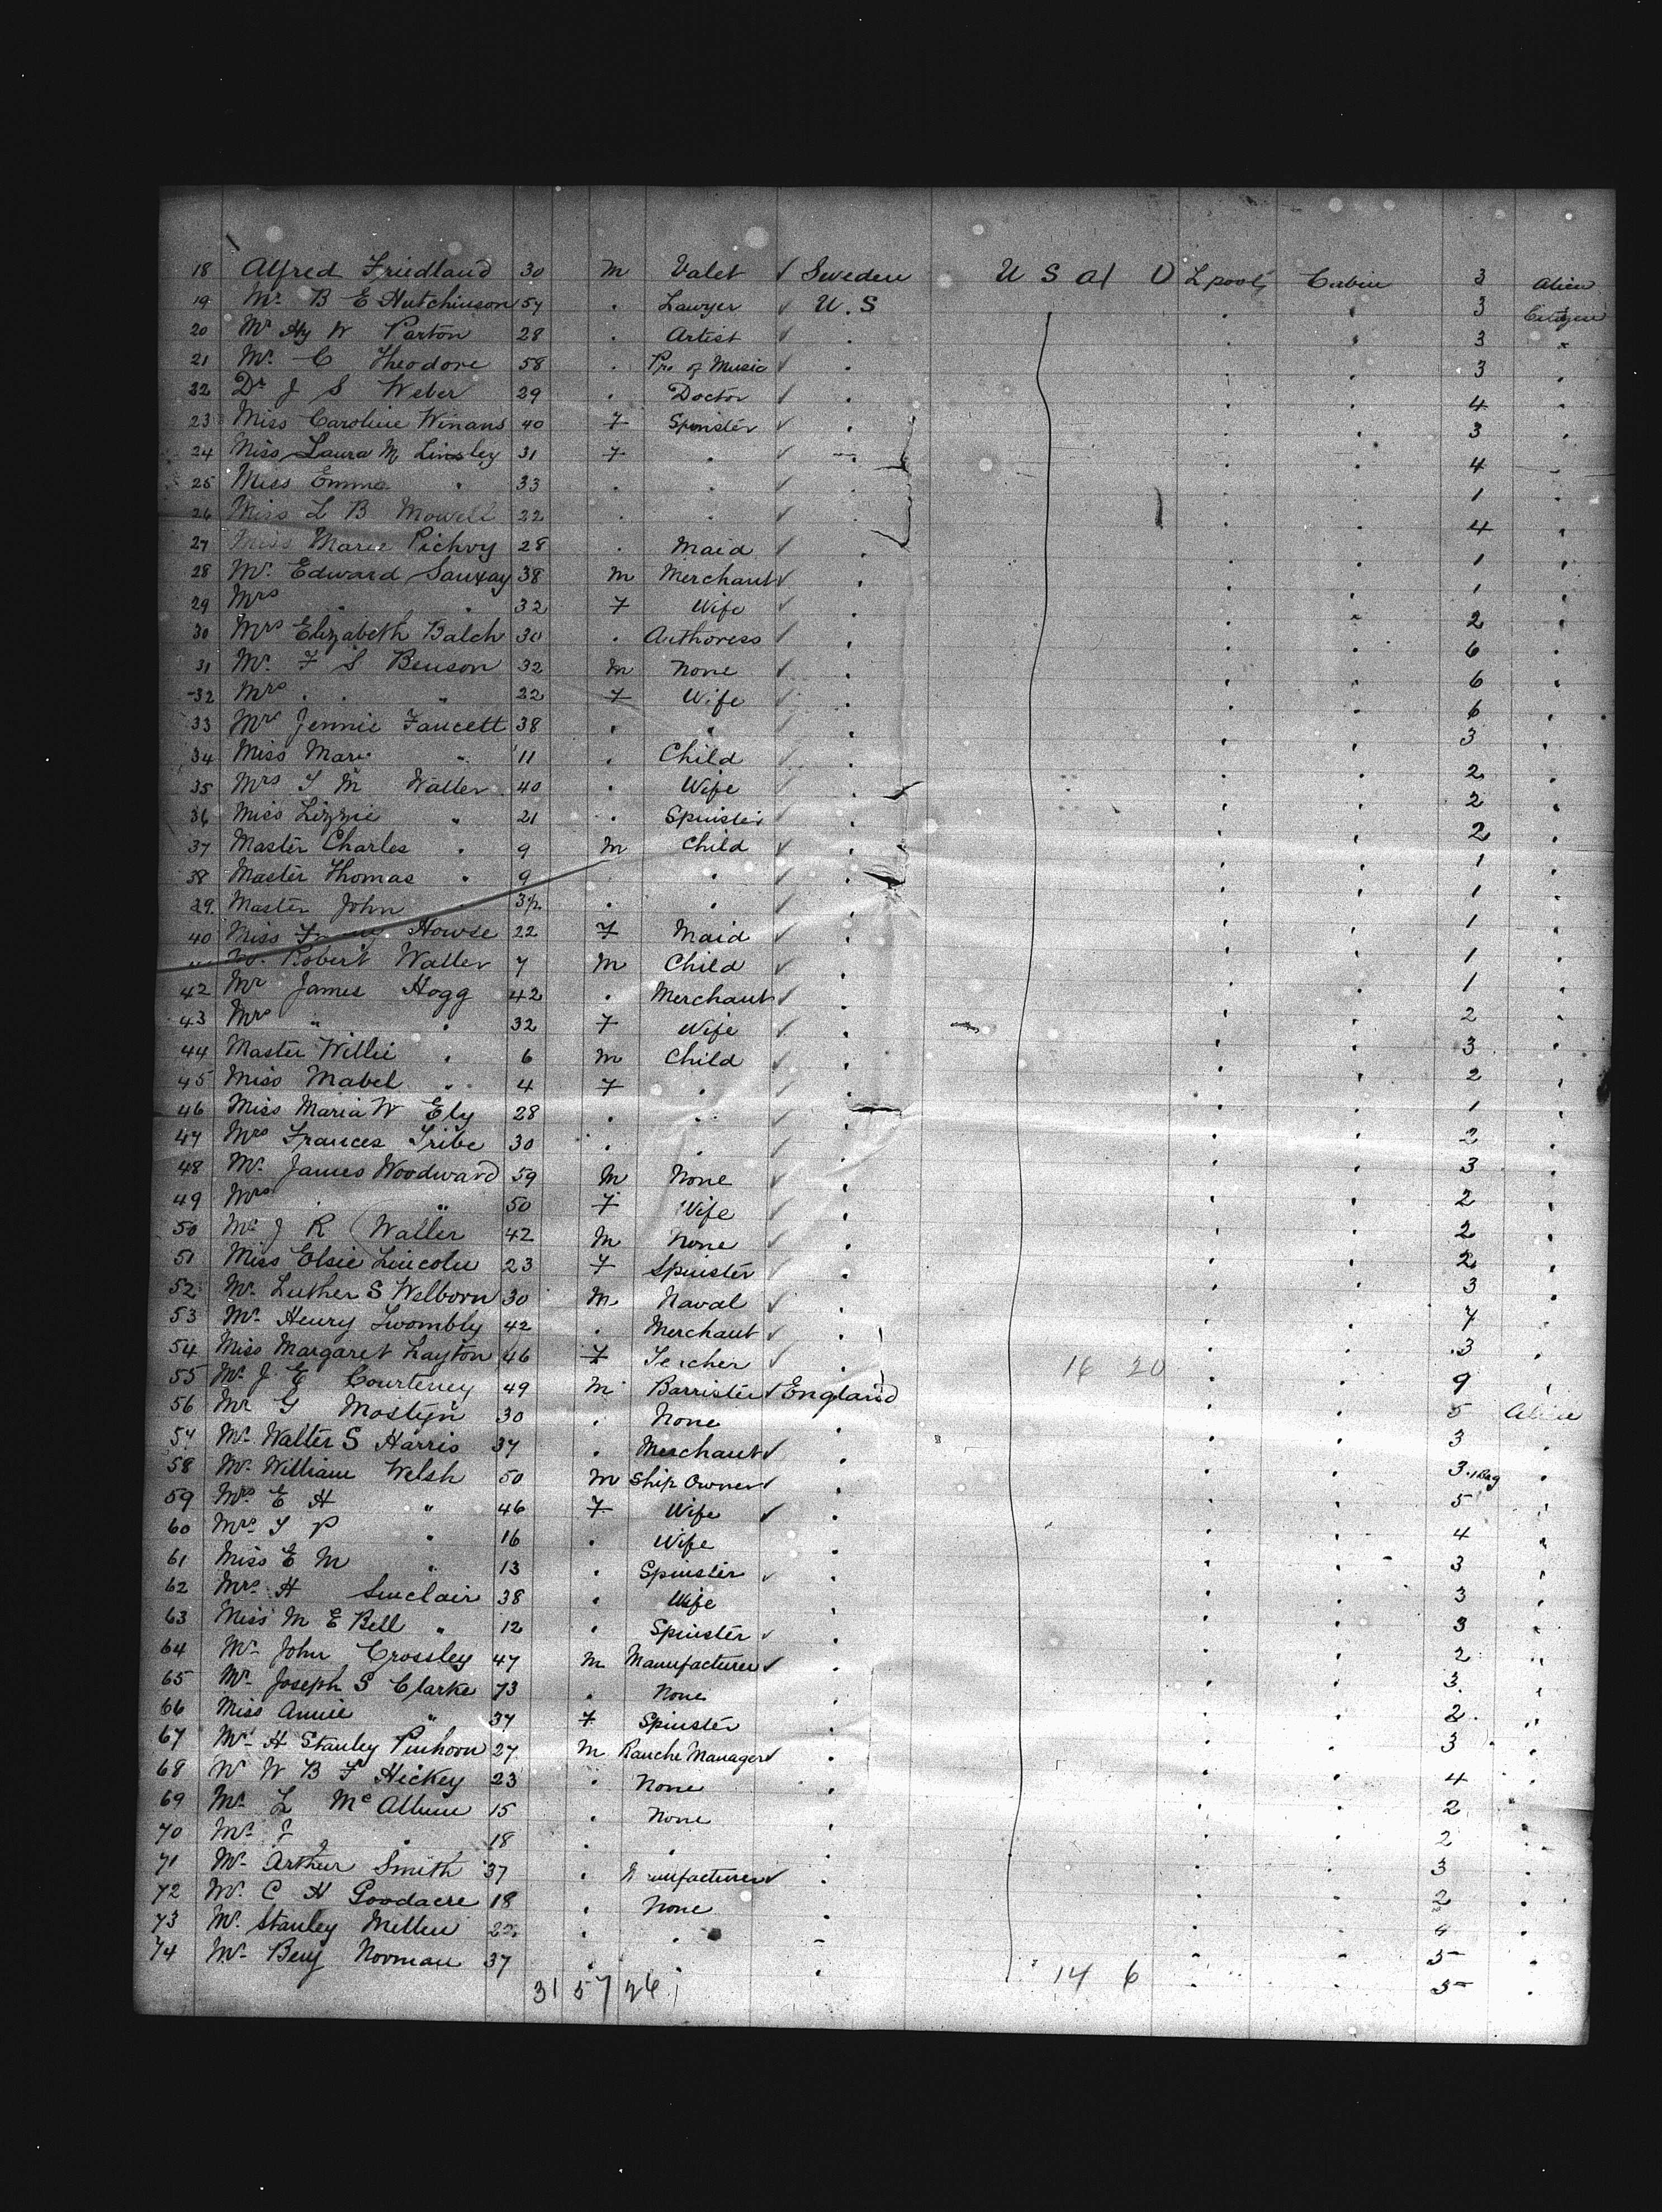 18 Alfred Friedland 30 m Valet ✓ Sweden U S a1 0 Lpool Cabin 3 Alien
19 Mr. B E Hutchinson 54 . Lawyer ✓ U.S . . 3 Citizen
20 Mr Hy W Parton 28 . Artist ✓ . . . 3 "
21 Mr. C Theodore 58 . Pro of Music ✓ . . . 3 .
22 Dr J S Weber 29 . Doctor ✓ . . . 4 .
23 Miss Caroline Winans 40 F Spinster ✓ . . . 3 .
24 Miss Laura M Linsley 31 F . ✓ . . . 4
25 Miss Emma " 33 . . ✓ . . . 1 .
26 Miss L B Mowell 22 . . ✓ . . . 4 .
27 Miss Marie Pichvy 28 . Maid ✓ . . . 1 .
28 Mr. Edward Sauxay 38 m Merchant ✓ . . . 1 .
29 Mrs " " 32 F Wife ✓ . . . 2 .
30 Mrs Elizabeth Balch 30 . Authoress ✓ . . . 6 .
31 Mr. F S Benson 32 m None ✓ . . . 6 .
32 Mrs . " 22 F Wife ✓ . . . 6 .
33 Mrs Jennie Faucett 38 . " ✓ . . . 3 .
34 Miss Mary " 11 . Child ✓ . . . 2 .
35 Mrs T M Waller 40 . Wife ✓ . . . 2 .
36 Miss Lizzie " 21 . Spinster ✓ . . . 2 .
37 Master Charles . 9 m Child ✓ . . . 1 .
38 Master Thomas . 9 . . ✓ . . . 1 .
39. Master John . . . ✓ . . . 1 .
40 Miss Howse 22 F Maid ✓ . . . 1 .
Robert Waller 7 m Child ✓ . . . 1 .
42 Mr James Hogg 42 . Merchant ✓ . . . 2 .
43 Mrs " . 32 F Wife ✓ . . . 3 .
44 Master Willie . 6 m Child ✓ . . . 2 .
45 Miss Mabel " 4 F . ✓ . . . 1 .
46 Miss Maria W Ely 28 . . ✓ . . . 2 .
47 Mrs Frances Tribe 30 . . ✓ . . . 3 .
48 Mr. James Woodward 59 m None ✓ . . . 2 .
49 Mrs . " 50 F Wife ✓ . . . 2 .
50 Mr J R Waller 42 m None ✓ . . . 2 .
51 Miss Elsie Lincoln 23 F Spinster ✓ . . . 3 .
52 Mr. Luther S Welborn 30 m Naval ✓ . . . 7 .
53 Mr Henry Twombly 42 . Merchant ✓ . . . 3 .
54 Miss Margaret Layton 46 F Teacher ✓ . 16 20 . . 9 .
55 Mr. J E Courteney 49 m Barrister ✓ England . . 5 Alien
56 Mr G Mostyn 30 . None . . . 3 .
57 Mr. Walter S Harris 37 . Merchant ✓ . . . 3. 1 Bag .
58 Mr. William Welsh 50 m Ship Owner ✓ . . . 5 .
59 Mrs. E H " 46 F Wife ✓ . . . 4 .
60 Mrs. T P " 16 . Wife . . . 3 .
61 Miss E M " 13 . Spinster ✓ . . . 3 .
62 Mrs. H Sinclair 38 . Wife . . . 3 .
63 Miss M E Bell " 12 . Spinster ✓ . . . 2 "
64 Mr. John Crossley 47 m Manufacturer ✓ . . . 3. .
65 Mr. Joseph S Clarke 73 . None . . . 2. .
66 Miss Annie " 37 F Spinster . . . 3 .
67 Mr. H Stanley Pinhorn 27 m Ranche Manager ✓ . . . 4 .
68 Mr W B F Hickey 23 . None . . . 2 .
69 Mr. L McAllum 15 . None . . . 2 .
70 Mr. . 18 . . . . . 3 .
71 Mr. Arthur Smith 37 . Manufacturer ✓ . . . 2 .
72 Mr. C H Goodacre 18 . None . . . 4 .
73 Mr. Stanley . . . . . 5 .
74 Mr. Benj Norman 37 . . . 14 6 . . 5 .
31 57 26